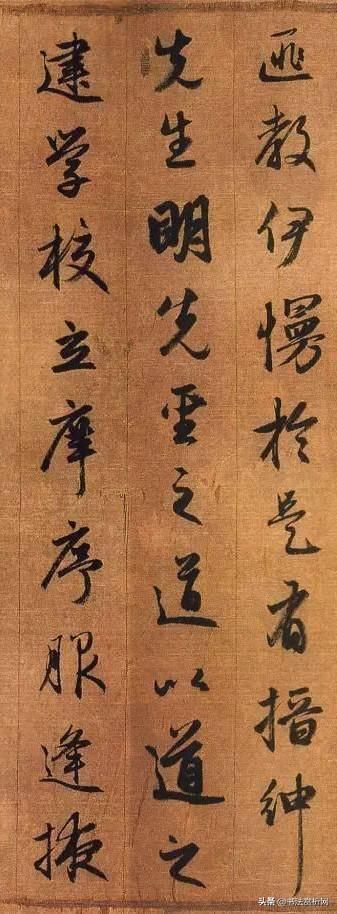 匪教伊慢於是有搢紳
先生明先聖之道以道之
建学校立庠序服逢掖
头条 @书法赏析网